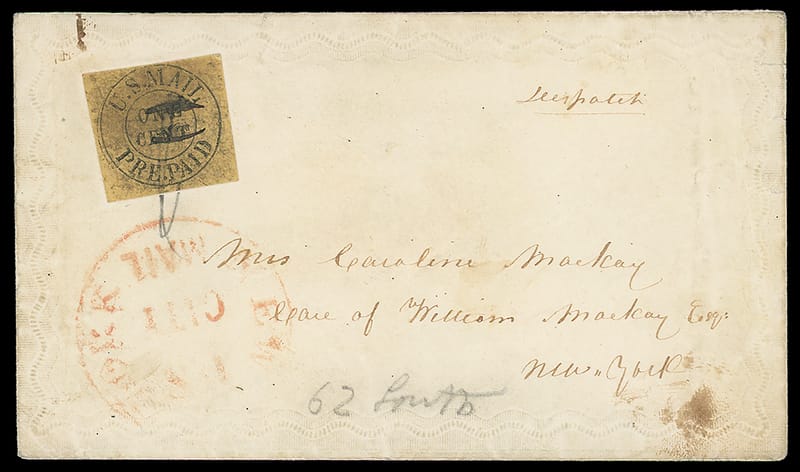 U.S. MAIL
ONE
CENT
PRE-PAID
Despatch
Mrs Caroline Mackay
Care of William Mackay Esq:
New-York
62 South
YORK
MAIL